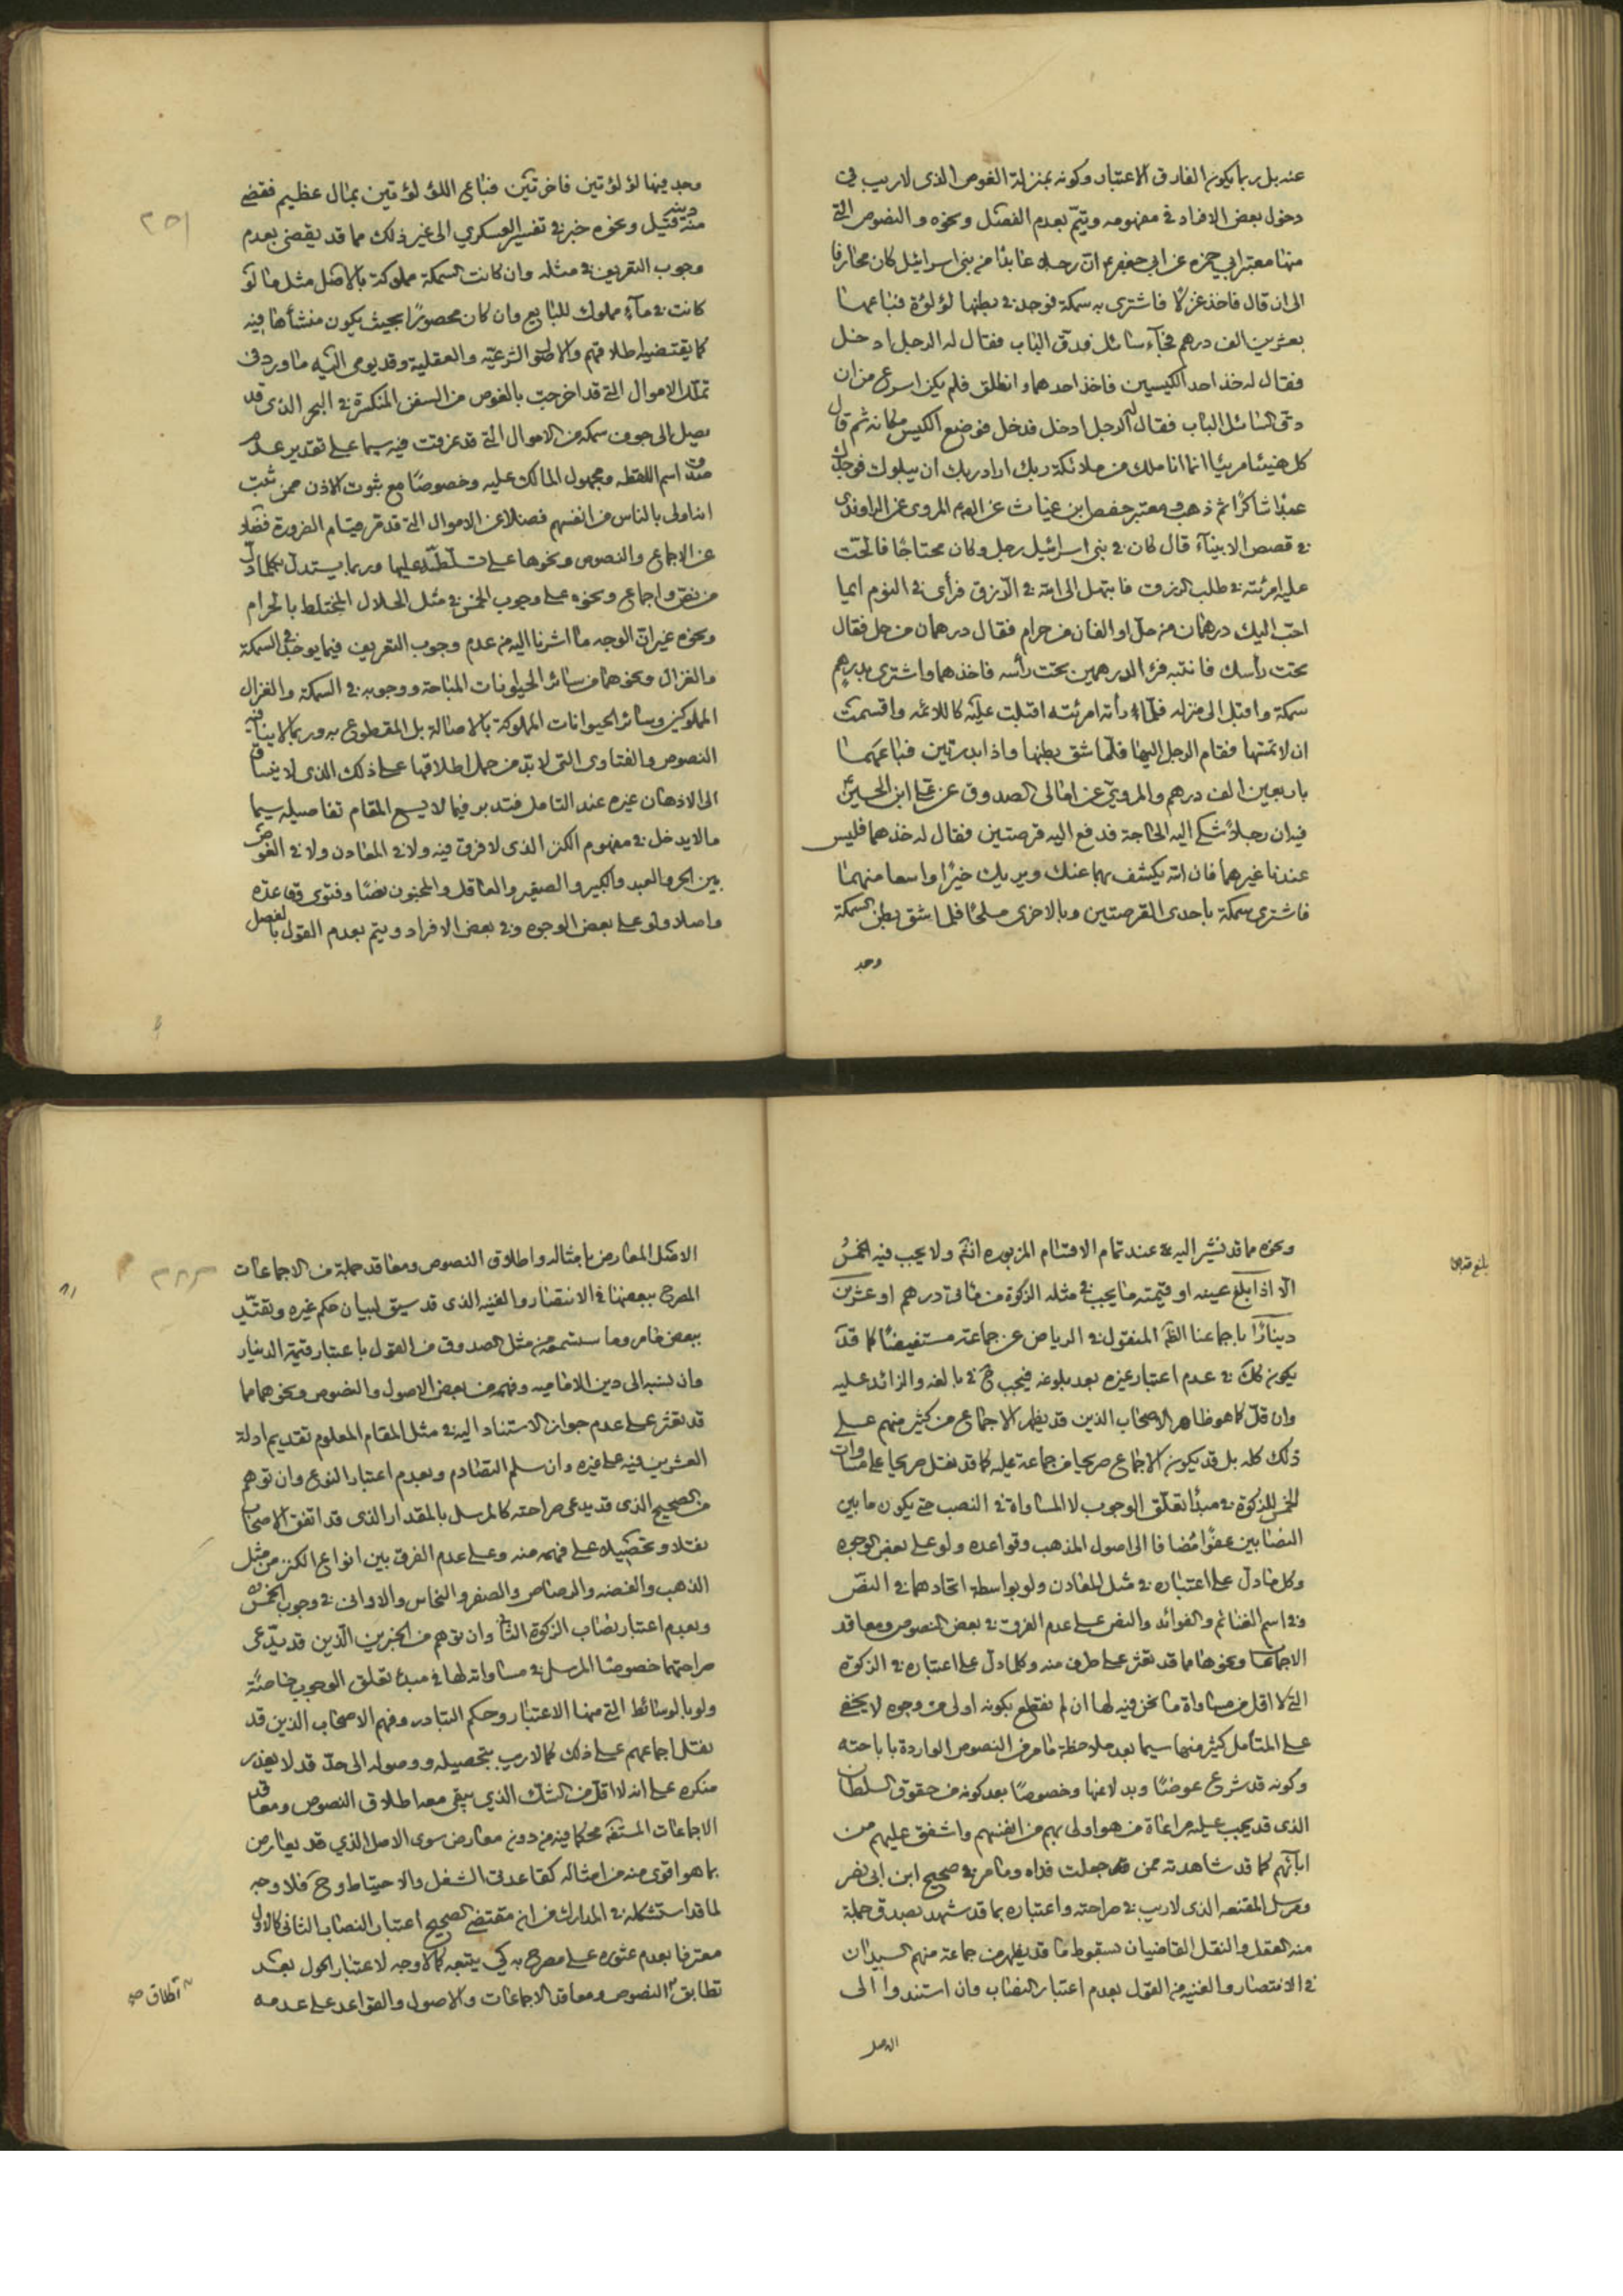 عنه بل ربما يكون الفارق الاعتبار وكونه بمنزلة الغوص الذى لاريب فى
دخول بعض الافراد فى مفهومه ويتمّ بعدم الفصل ونحوه والنصوص التى
منها معتبر ابى حمزه عن ابى جعفر ع انّ رجلا عابدًا من بنى اسرائيل كان محارفا
الى ان قال فاخذ غزلًا فاشترى به سمكة فوجد فى بطنها لؤلؤة فباعها
بعشرين الف درهم فجآء سائل فدق الباب فقال له الرجل ادخل
فقال له خذ احد الكيسين فاخذ احدهما وانطلق فلم يكن اسرع من ان
دق السائل الباب فقال له الرجل ادخل فدخل فوضع الكيس مكانه ثم قال
كل هنيئا مريئا انما انا ملك من ملائكة ربك اراد ربك ان يبلوك فوجدك
عبدًا شاكرًا ثم ذهب ومعتبر حفص ابن غياث عن المروى عن الراوندى
فى قصص الانبيآء قال كان فى بنى اسرائيل رجل وكان محتاجًا فالحّت
عليه امرئته فى طلب الرزق فابتهل الى الله فى الرّزق فرأى فى النوم ايما
احبّ اليك درهمان من حلّ او الفان من حرام فقال درهمان من حل فقال
تحت رأسك فانتبه فرأ الدرهمين تحت رأسه فاخذهما واشترى بدرهم
سمكة واقبل الى منزله فلمّا رأته امرئته اقبلت عليه كاللائمه واقسمت
ان لا تمسّها فقام الرجل اليها فلمّا شق بطنها واذا بدرتين فباعهما
باربعين الف درهم والمروىّ عن امالى الصدوق عن على ابن الحسين
فيه ان رجلاً شكى اليه الحاجة فدفع اليه قرصتين فقال له خذهما فليس
عندنا غيرهما فان الله يكشف بهما عنك ويريك خيرًا واسعا منهما
فاشترى سمكة باحدى القرصتين وبالاخرى ملحًا فلما شق بطن السمكة
وجد
وجد فيها لؤلؤتين فاخرتين فباع اللؤلؤتين بمال عظيم فقضى
منه دينه ونحوه خبر فى تفسير العسكري الى غير ذلك مما قد يقضى بعدم
وجوب التعريف فى مثله وان كانت السمكة مملوكة بالاصل مثل ما لو
كانت فى مآء مملوك للبائع وان كان محصورًا بحيث يكون منشأها فيه
كما يقتضيه اطلاقهم والاصول الشرعيّه والعقلية وقد يومى اليه ما ورد فى
تملك الاموال التى قد اخرجت بالغوص من السفن المنكسرة فى البحر الذى قد
يصل الى جوف سمكه من الاموال التى قد غرقت فيه سيما على تقدير عدم
صدق اسم اللقطه ومجهول المالك عليه وخصوصًا مع ثبوت الاذن ممن ثبت
انه اولى بالناس من انفسهم فضلا عن الاموال التى قد قيام الضرورة فضلا
عن الاجماع والنصوص ونحوها على تسلّطه عليها وربما يستدل بكلما دل
من نص واجماع ونحوه على وجوب الخمس فى مثل الحلال المختلط بالحرام
ونحوه غير انّ الوجه ما اشرنا اليه من عدم وجوب التعريف فيما يوجد فى السمكة
والغزال ونحوهما من سائر الحيوانات المباحة ووجوبه فى السمكة والغزال
المملوكين وسائر الحيوانات المملوكة بالاصالة بل المقطوع به وربما لا ينافيه
النصوص والفتاوى التى لابدّ من حمل اطلاقها على ذلك الذى لا ينساق
الى الاذهان غيره عند التامل فتدبر فيما لا يسع المقام تفاصيله سيما
ما لا يدخل فى مفهوم الكنز الذى لا فرق فيه ولا فى المعادن ولا فى الغوص
بين الحر والعبد والكبير والصغير والعاقل والمجنون نصًا وفتوى وقاعده
واصلا ولو على بعض الوجوه وفى بعض الافراد ويتم بعدم القول بالفصل
ونحوه مما قد نشير اليه عند تمام الاقسام المزبوره انشم ولا يجب فيه الخمس
الّا اذا بلغ عينه او قيمته ما يجب فى مثله الزكوة من مأتى درهم او عشرين
دينارًا باجماعنا الظ المنقول فى الرياض عن جماعة مستفيضًا كما قد
يكون كك فى عدم اعتبار غيره بعد بلوغه فيجب ح فى بالغه والزائد عليه
وان قلّ كما هو ظاهر الاصحاب الذين قد يظهر الاجماع من كثير منهم على
ذلك كله بل قد يكون الاجماع صريحا من جماعة عليه كما قد نقل صريحا على مساوات
الخمس للزكوة فى مبدأ تعلّق الوجوب لا المساواة فى النصب حتى يكون ما بين
النصابين عفوًا مضافا الى اصول المذهب وقواعده ولو على بعض الوجوه
وكل ما دل على اعتباره فى مثل المعادن ولو بواسطة اتحادهما فى النصّ
وفى اسم الغنائم والفوائد والنص على عدم الفرق فى بعض النصوص ومعاقد
الاجماعات ونحوها مما قد نعثر على طرف منه وكلما دل على اعتباره فى الزكوة
التى لا اقل من مساواة ما نحن فيه لها ان لم نقطع بكونه اولى من وجوه لا يخفى
على المتأمل كثير منها سيما بعد ملاحظة ما مر من النصوص الواردة باباحته
وكونه قد شرع عوضًا وبدلا عنها وخصوصًا بعد كونه من حقوق السلطان
الذى قد يجب عليه مراعاة من هو اولى بهم من انفسهم واشفق عليهم من
ابآئهم كما قد شاهدته ممن جعلت فداه وما مر فى صحيح ابن ابى نصر
ومرسل المقنعه الذى لا ريب فى صراحته واعتباره بما قد شهد بصدق جملة
منه العقل والنقل القاضيان بسقوط ما قد يظهر من جماعة منهم السيدان
فى الانتصار والغنيه من القول بعدم اعتبار النصاب وان استندوا الى
الاصل
الاصل المعارض بامثاله واطلاق النصوص ومعاقد جملة من الاجماعات
المصرح ببعضها فى الانتصار والغنيه الذى قد سيق لبيان حكم غيره وبقيد
ببعض ما مر وما ستسمعه من مثل الصدوق من القول باعتبار قيمة الدينار
وان نسبه الى دين الاماميه وفهمه من بعض الاصول والنصوص ونحوهما مما
قد نعثر على عدم جواز الاستناد اليه فى مثل المقام المعلوم تقديم ادلة
العشرين فيه على غيره وان سلم التصادم وبعدم اعتبار النوع وان توهم
من الصحيح الذى قد يدعى صراحته كالمرسل بالمقدار الذى قد اتفق الاصحاب
نقلا وتحصيلا على فهمه منه وعلى عدم الفرق بين انواع الكنز من مثل
الذهب والفضه والرصاص والصفر والنحاس والاوانى فى وجوب الخمس
وبعدم اعتبار نصاب الزكوة الثانى وان توهم من الخبرين الذين قد يدّعى
صراحتهما خصوصًا المرسل فى مساواته لها فى مبدء تعلق الوجوب خاصّة
ولو بالوسائط التى منها الاعتبار وحكم التبادر وفهم الاصحاب الذين قد
نقل اجماعهم على ذلك كما لا ريب بتحصيله ووصوله الى حدّ قد لا يعذر
منكره على انه لا اقل من الشك الذي يبقى معه اطلاق النصوص ومعاقد
الاجماعات المستفه محكما فيه من دون معارض سوى الاصل الذي قد يعارض
بما هو اقوى منه من امثاله كقاعدتى الشغل والاحتياط وح فلا وجه
لما قد استشكله فى المدارك من ان مقتضى الصحيح اعتبار النصاب الثانى كالاول
معترفا بعدم عثوره على مصرح به كي يتجه كما لا وجه لاعتبار الحول بعد
تطابق النصوص ومعاقد الاجماعات والاصول والقواعد على عدمه
اطلاق صح